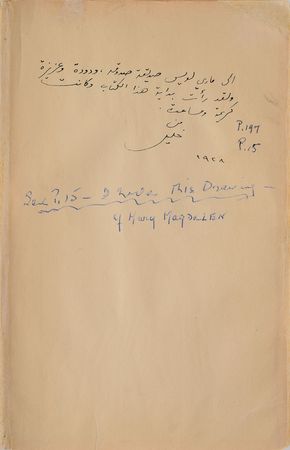 الى ماري لويس صديقة صدوقة، ودودة وعزيزة
ولقد رأت بداية هذا الكتاب وكانت
كريمة وساعدت.
من
خليل
١٩٢٨
P.197
P.15
See P.15 – I have This Drawing –
of Mary MAGDALEN